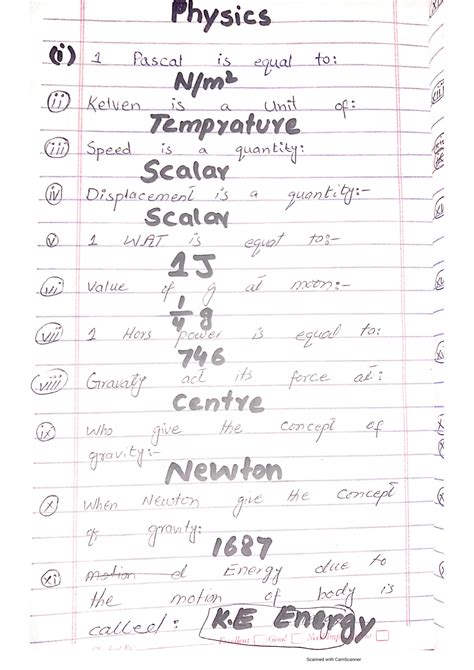 Physics
(i) 1 Pascal is equal to:
N/m²
(ii) Kelven is a Unit of:
Temprature
(iii) Speed is a quantity:
Scalar
(iv) Displacement is a quantity:-
Scalar
(v) 1 WAT is equal to:-
1J
(vi) Value of g at moon:-
1/4 g
(vii) 1 Hors power is equal to:
746
(viii) Gravaty act its force at:
Centre
(ix) Who give the concept of
gravity:-
Newton
(x) When Newton give the concept
of gravity:
1687
(xi) motion d Energy due to
the motion of body is
called: K.E Energy
Excellent Good
Scanned with CamScanner